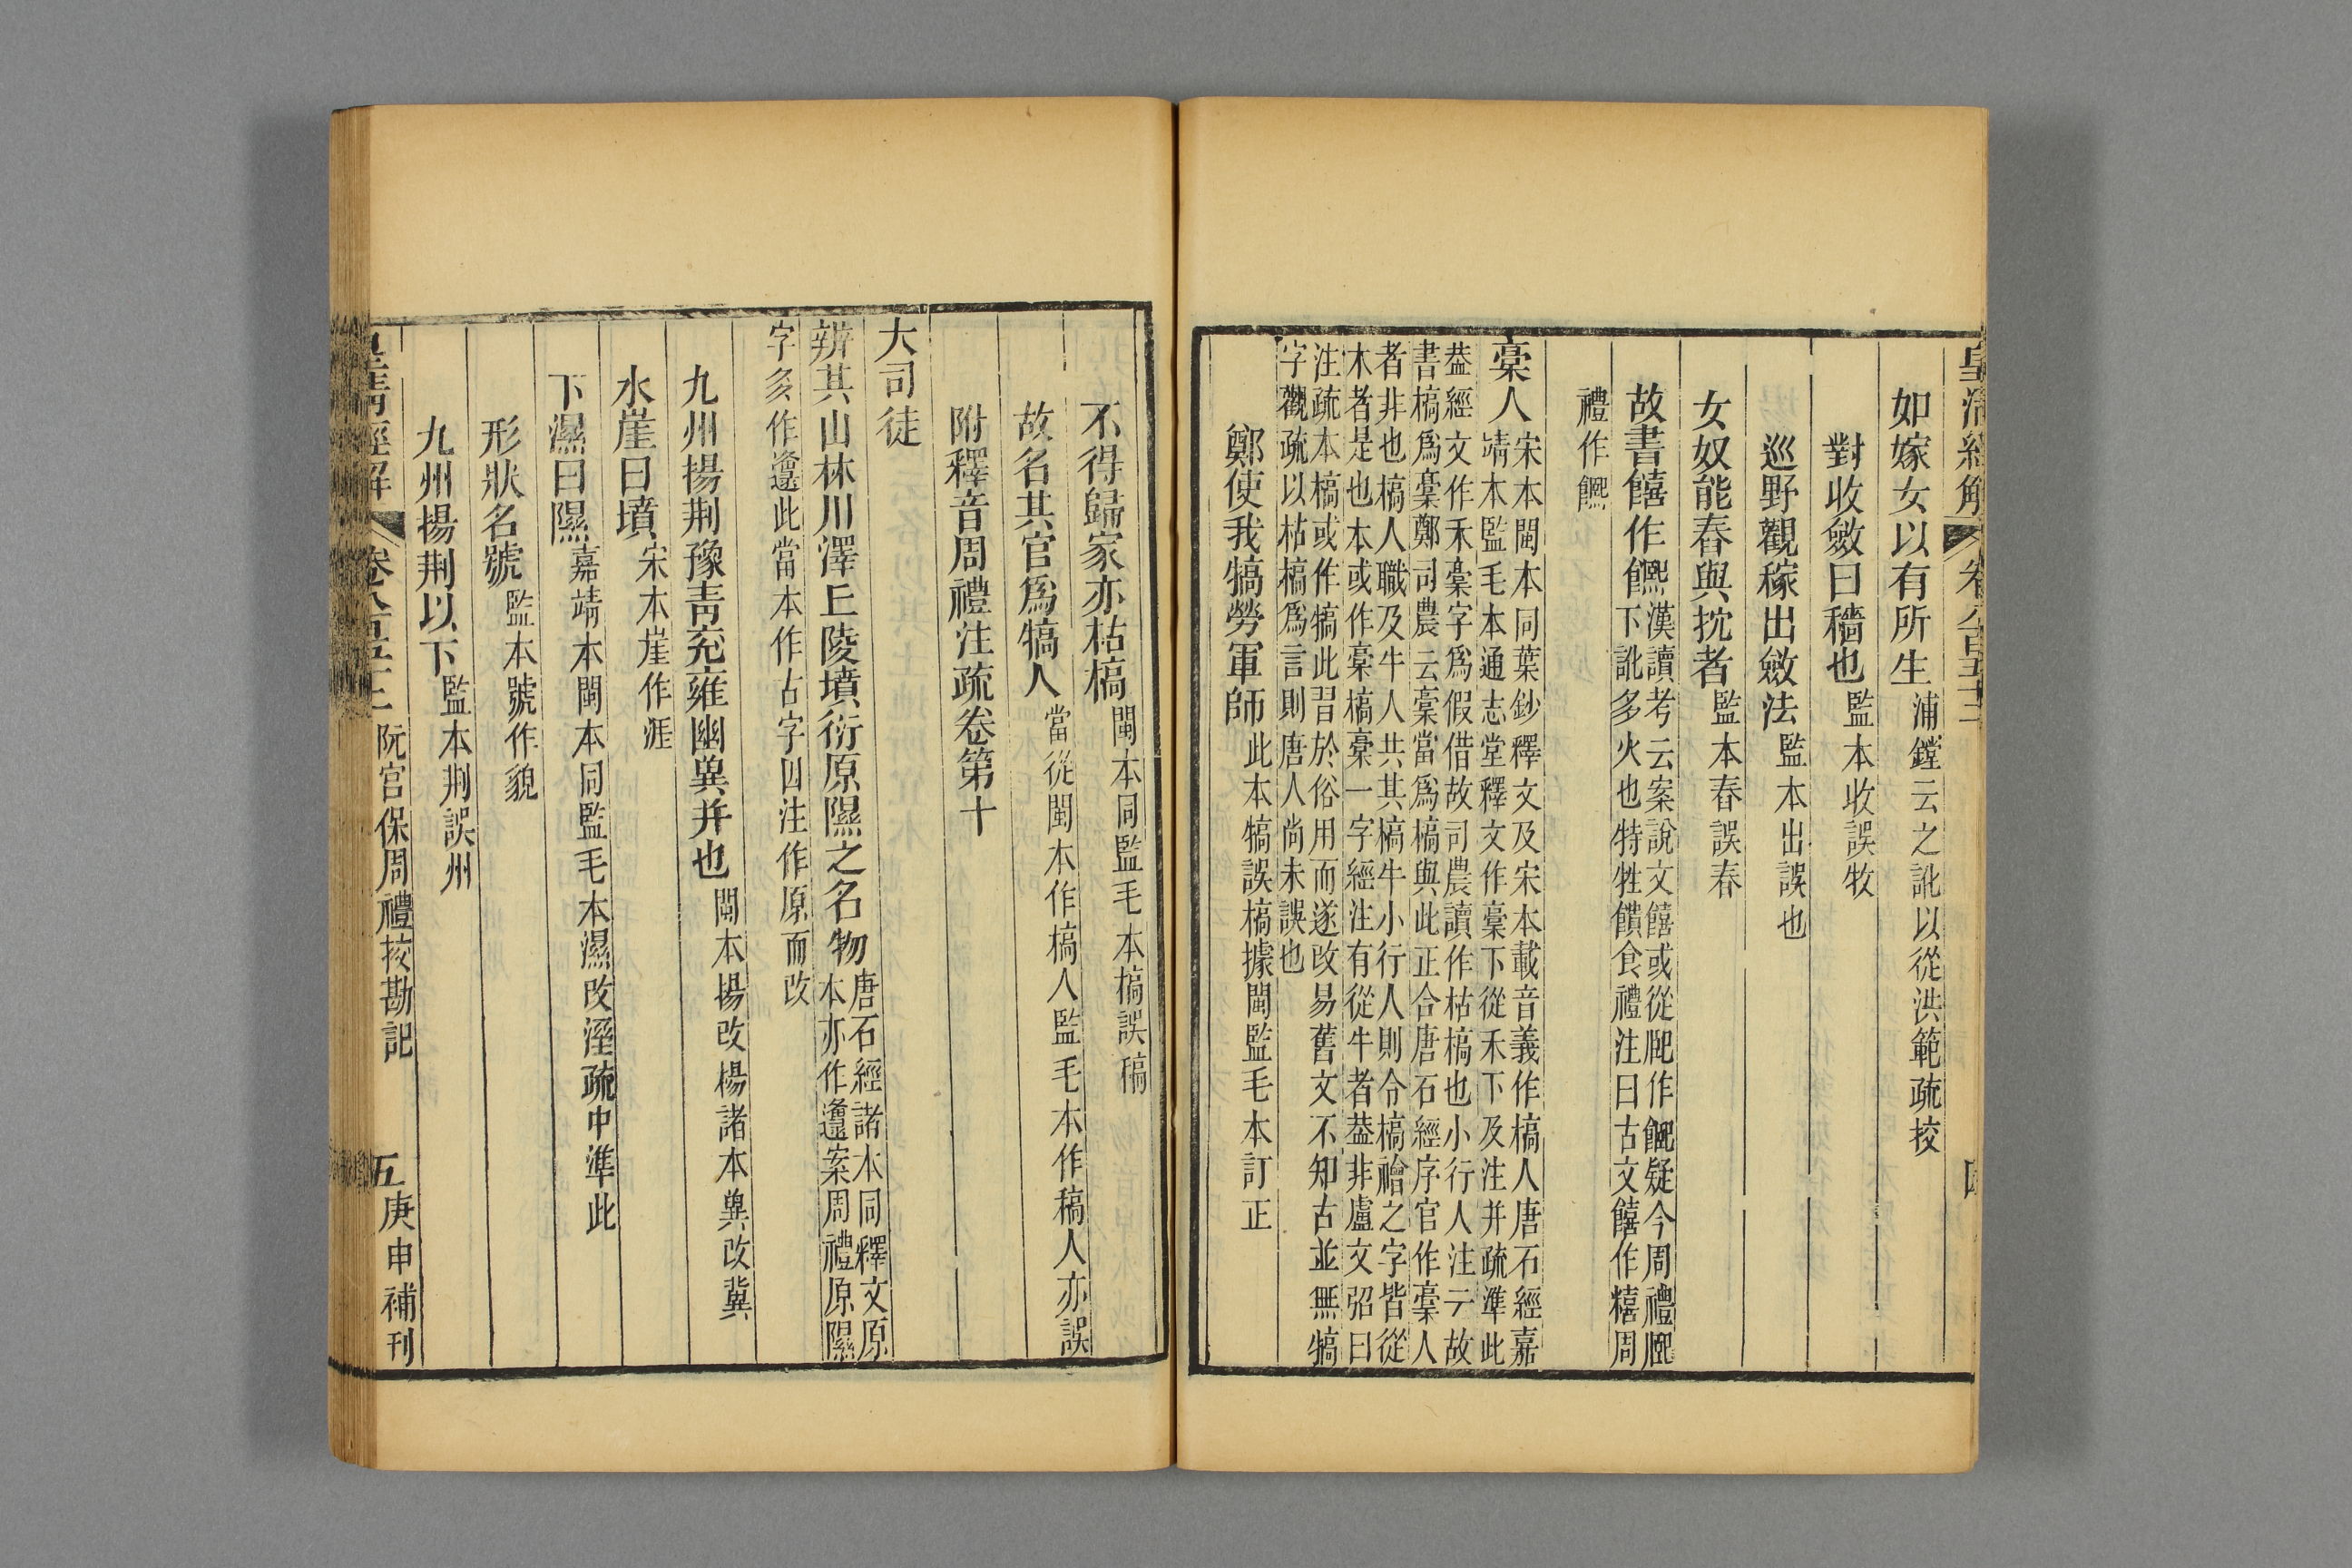 皇清經解 卷八百五十三
如嫁女以有所生 浦鏜云之訛以從洪範疏挍
對收斂曰穡也 監本收誤牧
巡野觀稼出斂法 監本出誤也
女奴能舂與抗者 監本舂誤春
故書饎作𩜉 漢讀考云案說文饎或從配作𩚳疑今周禮𩜉
下訛多火也特牲饋食禮注曰古文饎作糦周
禮作𩜉
槀人 宋本閩本同葉鈔釋文及宋本載音義作槁人唐石經嘉
靖本監毛本通志堂釋文作槀下從禾下及注并疏準此
葢經文作禾槀字爲假借故司農讀作枯槁也小行人注云故
書槁爲槀鄭司農云槀當爲槁與此正合唐石經序官作槀人
者非也槁人職及牛人共其槁牛小行人則令槁禬之字皆從
木者是也本或作槀槁槀一字經注有從牛者葢非盧文弨曰
注疏本槁或作犒此習於俗用而遂改易舊文不知古並無犒
字觀疏以枯槁爲言則唐人尚未誤也
鄭使我犒勞軍師 此本犒誤槁據閩監毛本訂正
不得歸家亦枯槁 閩本同監毛本槁誤稿
故名其官爲犒人 當從閩本作槁人監毛本作稿人亦誤
附釋音周禮注疏卷第十
大司徒
辨其山林川澤丘陵墳衍原隰之名物 唐石經諸本同釋文原
本亦作邍案周禮原隰
字多作邍此當本作古字因注作原而改
九州揚荆豫青兖雍幽兾并也 閩本揚改楊諸本兾改冀
水崖曰墳 宋本崖作涯
下濕曰隰 嘉靖本閩本同監毛本濕改溼疏中準此
形狀名號 監本號作貌
九州揚荆以下 監本荆誤州
皇清經解 卷八百五十三 阮宫保周禮挍勘記 五 庚申補刊